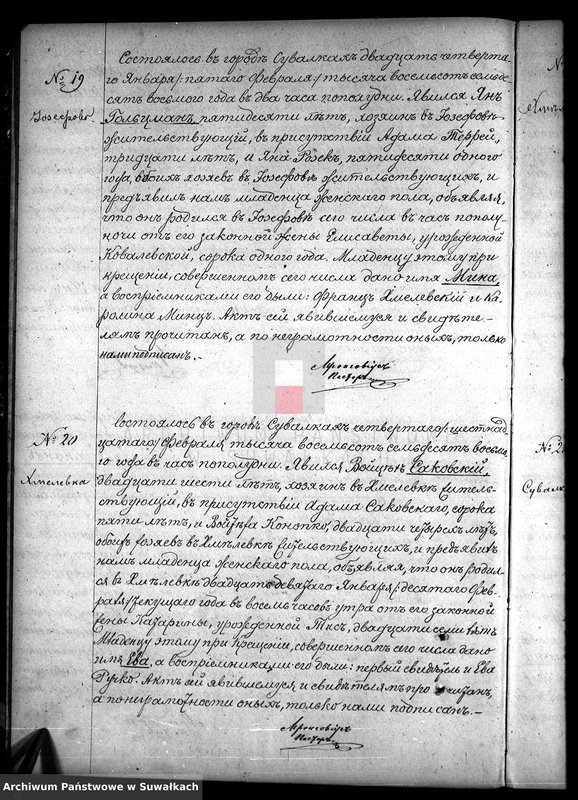 № 19
Іозефово
Состоялось въ городѣ Сувалкахъ двадцать четверта-
го Января /: пятаго Февраля :/ тысяча восемьсотъ семьде-
сятъ восьмого года въ два часа пополудни. Явился Янъ
Гольцманъ, пятидесяти лѣтъ, хозяинъ въ Іозефовѣ
жительствующій, въ присутствіи Адама Террей,
тридцати лѣтъ, и Яна Рѫек, пятидесяти одного
года, обоихъ хозяевъ въ Іозефовѣ жительствующихъ, и
предъявилъ намъ младенца женскаго пола, объявляя,
что онъ родился въ Іозефовѣ сего числа въ часъ полу-
ночи отъ его законной жены Елисаветы, урожденной
Ковалевской, сорока одного года. Младенцу этому при
крещеніи, совершенномъ сего числа дано имя Мина,
а воспріемниками его были: Францъ Хмелевскій и Ка-
ролина Минцъ. Актъ сей явившемуся и свидѣте-
лямъ прочитанъ, а по неграмотности оныхъ, только
нами подписанъ.-
Пасторъ
№ 20
Хмелевка
Состоялось въ городѣ Сувалкахъ четвертаго /: шестнад-
цатаго :/ Февраля тысяча восемьсотъ семьдесятъ восьмо-
го года въ часъ пополудни. Явился Войцѣхъ Саковскій,
двадцати шести лѣтъ, хозяинъ въ Хмелевкѣ житель-
ствующій, въ присутствіи Адама Саковскаго, сорока
пяти лѣтъ, и Войцѣха Конопко, двадцати четырехъ лѣтъ,
обоихъ хозяевъ въ Хмѣлевкѣ жительствующихъ, и предъявилъ
намъ младенца женскаго пола, объявляя, что онъ родил-
ся въ Хмѣлевкѣ двадцать девятаго Января /: десятаго Фев-
раля :/ текущаго года въ восемь часовъ утра отъ его законной
жены Катарины, урожденной Тисъ, двадцати семи лѣтъ
Младенцу этому при крещеніи, совершенномъ сего числа дано
имя Ева, а воспріемниками его были: первый свидѣтель и Ева
Гуско. Актъ сей явившемуся и свидѣтелямъ прочитанъ,
а по неграмотности оныхъ, только нами подписанъ.-
Пасторъ
Сувалк
Archiwum Państwowe w Suwałkach